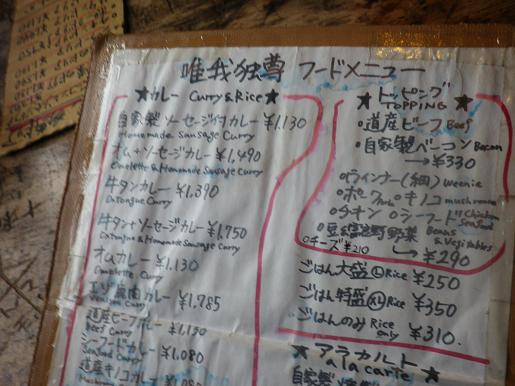 唯我独尊 フードメニュー
★カレー Curry & Rice★
自家製ソーセージ付カレー ¥1,130
Homemade Sausage Curry
オム+ソーセージカレー ¥1,490
Omelette & Homemade Sausage Curry
牛タンカレー ¥1,390
Oxtongue Curry
牛タン+ソーセージカレー ¥1,750
Oxtongue & Homemade Sausage Curry
オムカレー ¥1,130
Omelette Curry
エゾ鹿肉カレー ¥1,785
Venison Curry
道産ビーフカレー ¥1,130
Beef Curry
シーフードカレー ¥1,080
Seafood Curry
道産キノコカレー
★トッピング★
TOPPING
・道産ビーフ Beef
・自家製ベーコン Bacon
→¥330
○ウィンナー(細) weenie
○ポーク Pork ○キノコ mushrooms
○チキン Chicken ○シーフード Seafood
・豆 Beans 富良野野菜 & Vegitables
○チーズ ¥210 →¥290
ごはん大盛 Ⓛ Rice ¥250
ごはん特盛 XL Rice ¥350
ごはんのみ Rice only ¥310.
★アラカルト★
A la carte
自家製